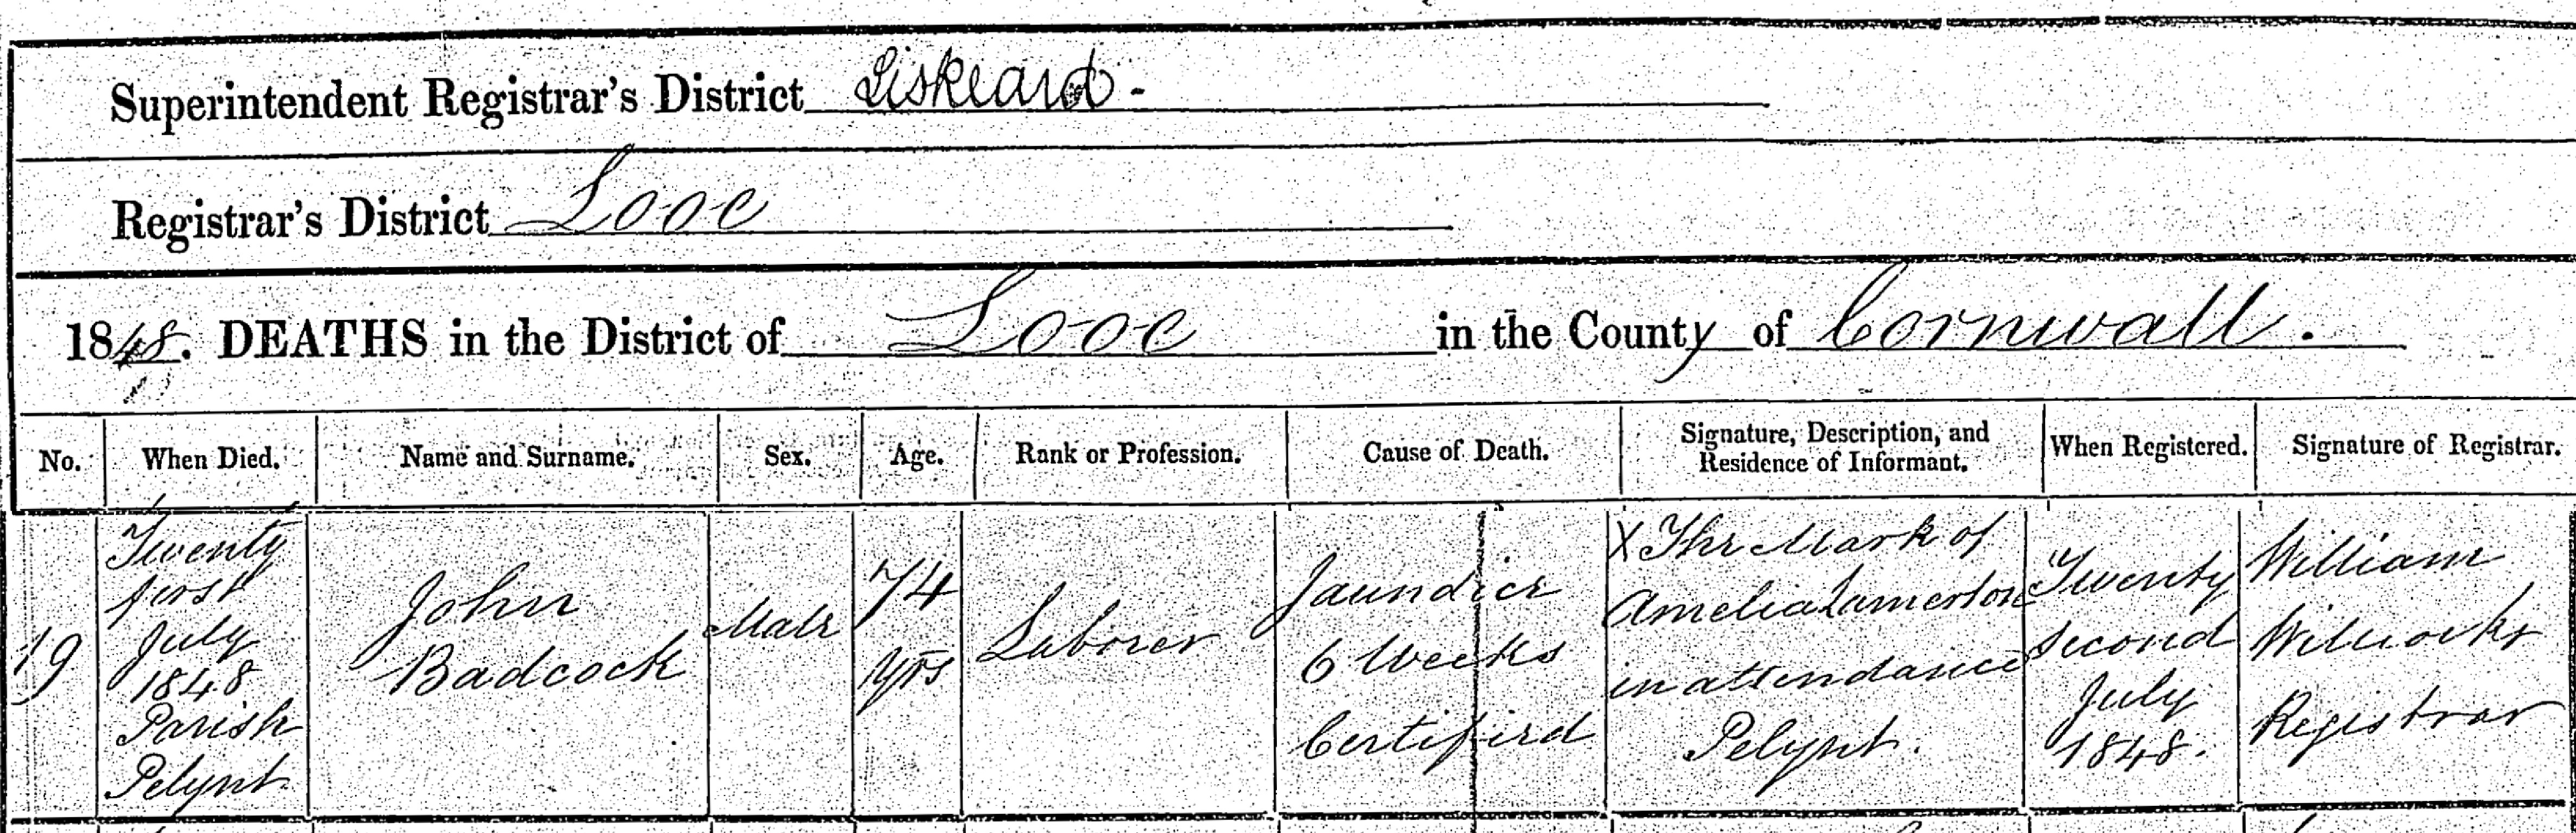 Superintendent Registrar's District Liskeard -
Registrar's District Looe
1848. DEATHS in the District of Looe in the County of Cornwall.
No. When Died. Name and Surname. Sex. Age. Rank or Profession. Cause of Death. Signature, Description, and Residence of Informant. When Registered. Signature of Registrar.
19
Twenty
first
July
1848
Parish
Pelynt
John
Badcock
Male
74
yrs
Laborer
Jaundice
6 Weeks
Certified
X The Mark of
Amelia Lamerton
in attendance
Pelynt.
Twenty
second
July
1848.
William
Willcocks
Registrar